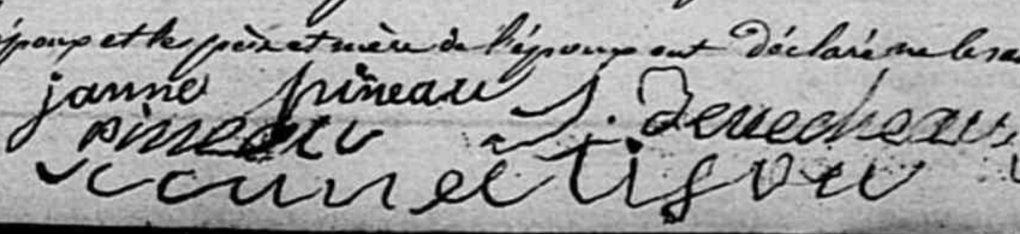 époux et le père et mère de l'époux ont déclaré ne le sa
janne pineau J. Devecheau
pineau